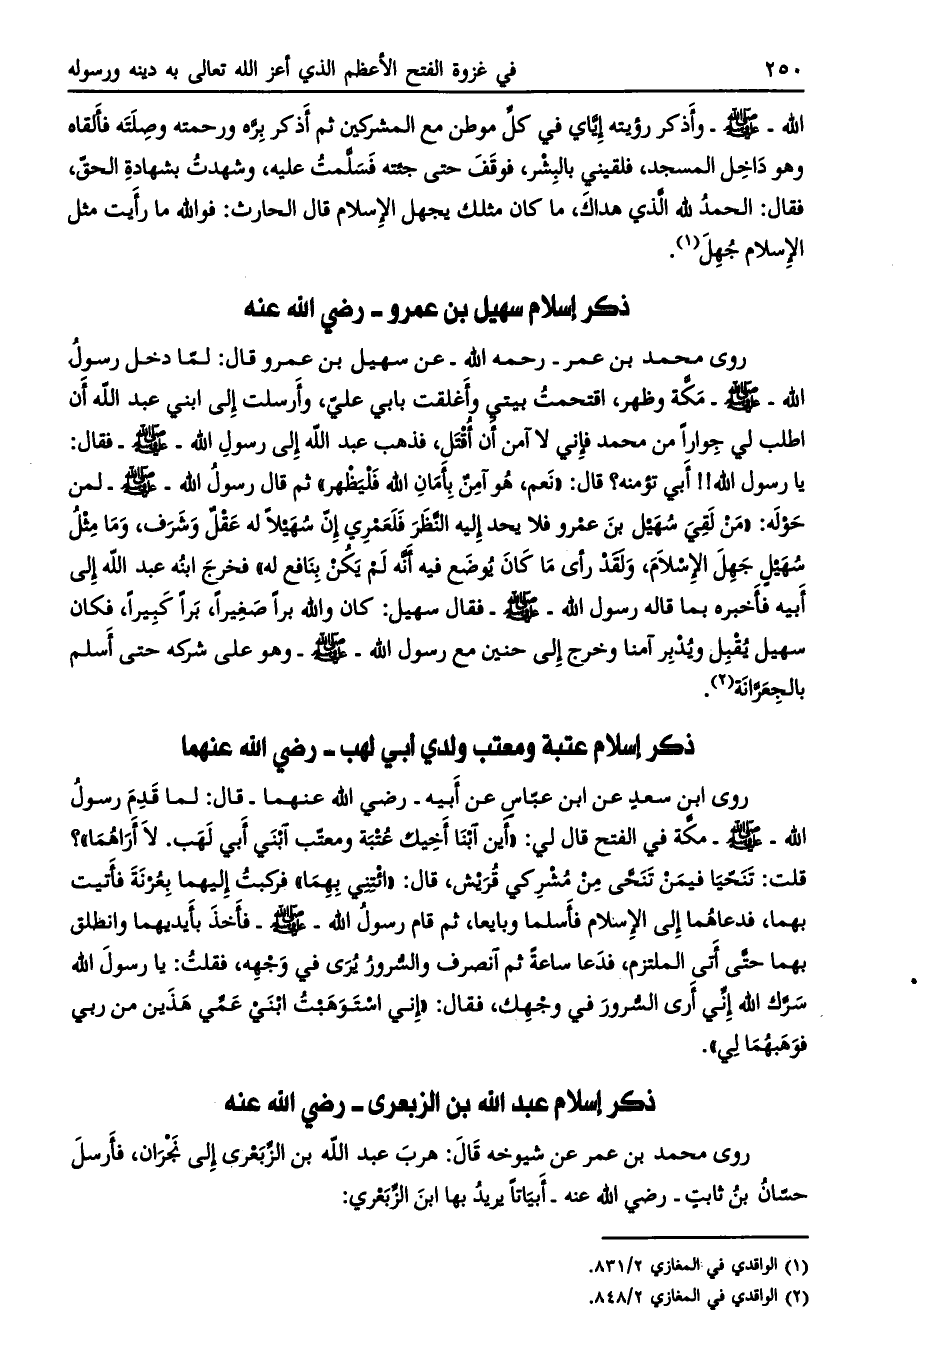 ٢٥٠ في غزوة الفتح الأعظم الذي أعز الله تعالى به دينه ورسوله
الله ـ ﷺ ـ وأَذكر رؤيته إيَّاي في كلِّ موطن مع المشركين ثم أَذكر بِرَّه ورحمته وصِلَتَه فأَلقاه
وهو دَاخِل المسجد، فلقيني بالبِشْر، فوقَفَ حتى جئته فَسَلَّمتُ عليه، وشهدتُ بشهادةِ الحقّ،
فقال: الحمدُ لله الَّذي هداكَ، ما كان مثلك يجهل الإسلام قال الحارث: فوالله ما رأَيت مثل
الإسلام جُهِلَ(١).
ذكر إسلام سهيل بن عمرو ـ رضي الله عنه
روى محمد بن عمر ـ رحمه الله ـ عن سهيل بن عمرو قال: لمّا دخل رسولُ
الله ـ ﷺ ـ مَكَّة وظهر، اقتحمتُ بيتي وأَغلقت بابي عليّ، وأَرسلت إلى ابني عبد اللّه أَن
اطلب لي جِواراً من محمد فإني لا آمن أَن أُقْتَل، فذهب عبد اللّه إلى رسولِ الله ـ ﷺ ـ فقال:
يا رسول الله!! أَبي تؤمنه؟ قال: «نَعم، هُو آمِنٌ بِأَمَانِ الله فَلْيَظْهر» ثم قال رسولُ الله ـ ﷺ ـ لمن
حَوْلَه: «مَنْ لَقِيَ سُهَيْل بنَ عمْرو فلا يحد إليه النَّظَرَ فَلَعمْرِي إنّ سُهَيْلاً له عَقْلٌ وَشَرَف، وَمَا مِثْلُ
سُهَيْلٍ جَهِلَ الإِسْلاَمَ، وَلَقَدْ رأى مَا كَانَ يُوضَع فيه أنَّه لَمْ يَكُنْ بِنَافع له» فخرجَ ابنُه عبد اللّه إلى
أَبيه فأَخبره بما قاله رسول الله ـ ﷺ ـ فقال سهيل: كان والله براً صَغِيراً، بَراً كَبيراً، فكان
سهيل يُقْبِل ويُدْبِر آمنا وخرج إلى حنين مع رسول الله ـ ﷺ ـ وهو على شركه حتى أَسلم
بالجِعَرَّانَة(٢).
ذكر إسلام عتبة ومعتب ولدي أبي لهب ـ رضي الله عنهما
روى ابن سعدٍ عن ابن عبّاسٍ عن أَبيه ـ رضي الله عنهما ـ قال: لما قَدِمَ رسولُ
الله ـ ﷺ ـ مكَّة في الفتح قال لي: «أَين آبْنَا أَخِيك عُتْبَة ومعتّب آبْنَي أَبي لَهَب. لاَ أَرَاهُمَا»؟
قلت: تَنَحّيَا فيمَنْ تَنَحَّى مِنْ مُشْرِكي قُرَيْش، قال: «ائْتِنِي بِهِمَا» فركبتُ إليهما بِعُرْنَةَ فأَتيت
بهما، فدعاهُما إلى الإسلام فأَسلما وبايعا، ثم قام رسولُ الله ـ ﷺ ـ فأَخذَ بأيديهما وانطلق
بهما حتَّى أَتى الملتزم، فدَعا ساعةً ثم آنصرف والسُّرورُ يُرَى في وَجْهِه، فقلتُ: يا رسولَ الله
سَرَّك الله إنِّي أَرى السُّرورَ في وجْهِك، فقال: «إني اسْتَوَهَبْتُ ابْنَيْ عَمِّي هَذَين من ربي
فوَهَبهُمَا لِي».
ذكر إسلام عبد الله بن الزبعرى ـ رضي الله عنه
روى محمد بن عمر عن شيوخه قَالَ: هربَ عبد اللّه بن الزِّبَعْرى إلى نَجْرَان، فأَرسلَ
حسّانُ بنُ ثابتٍ ـ رضي الله عنه ـ أَبيَاتاً يريدُ بها ابنَ الزِّبَعْري:
(١) الواقدي في المغازي ٨٣١/٢.
(٢) الواقدي في المغازي ٨٤٨/٢.